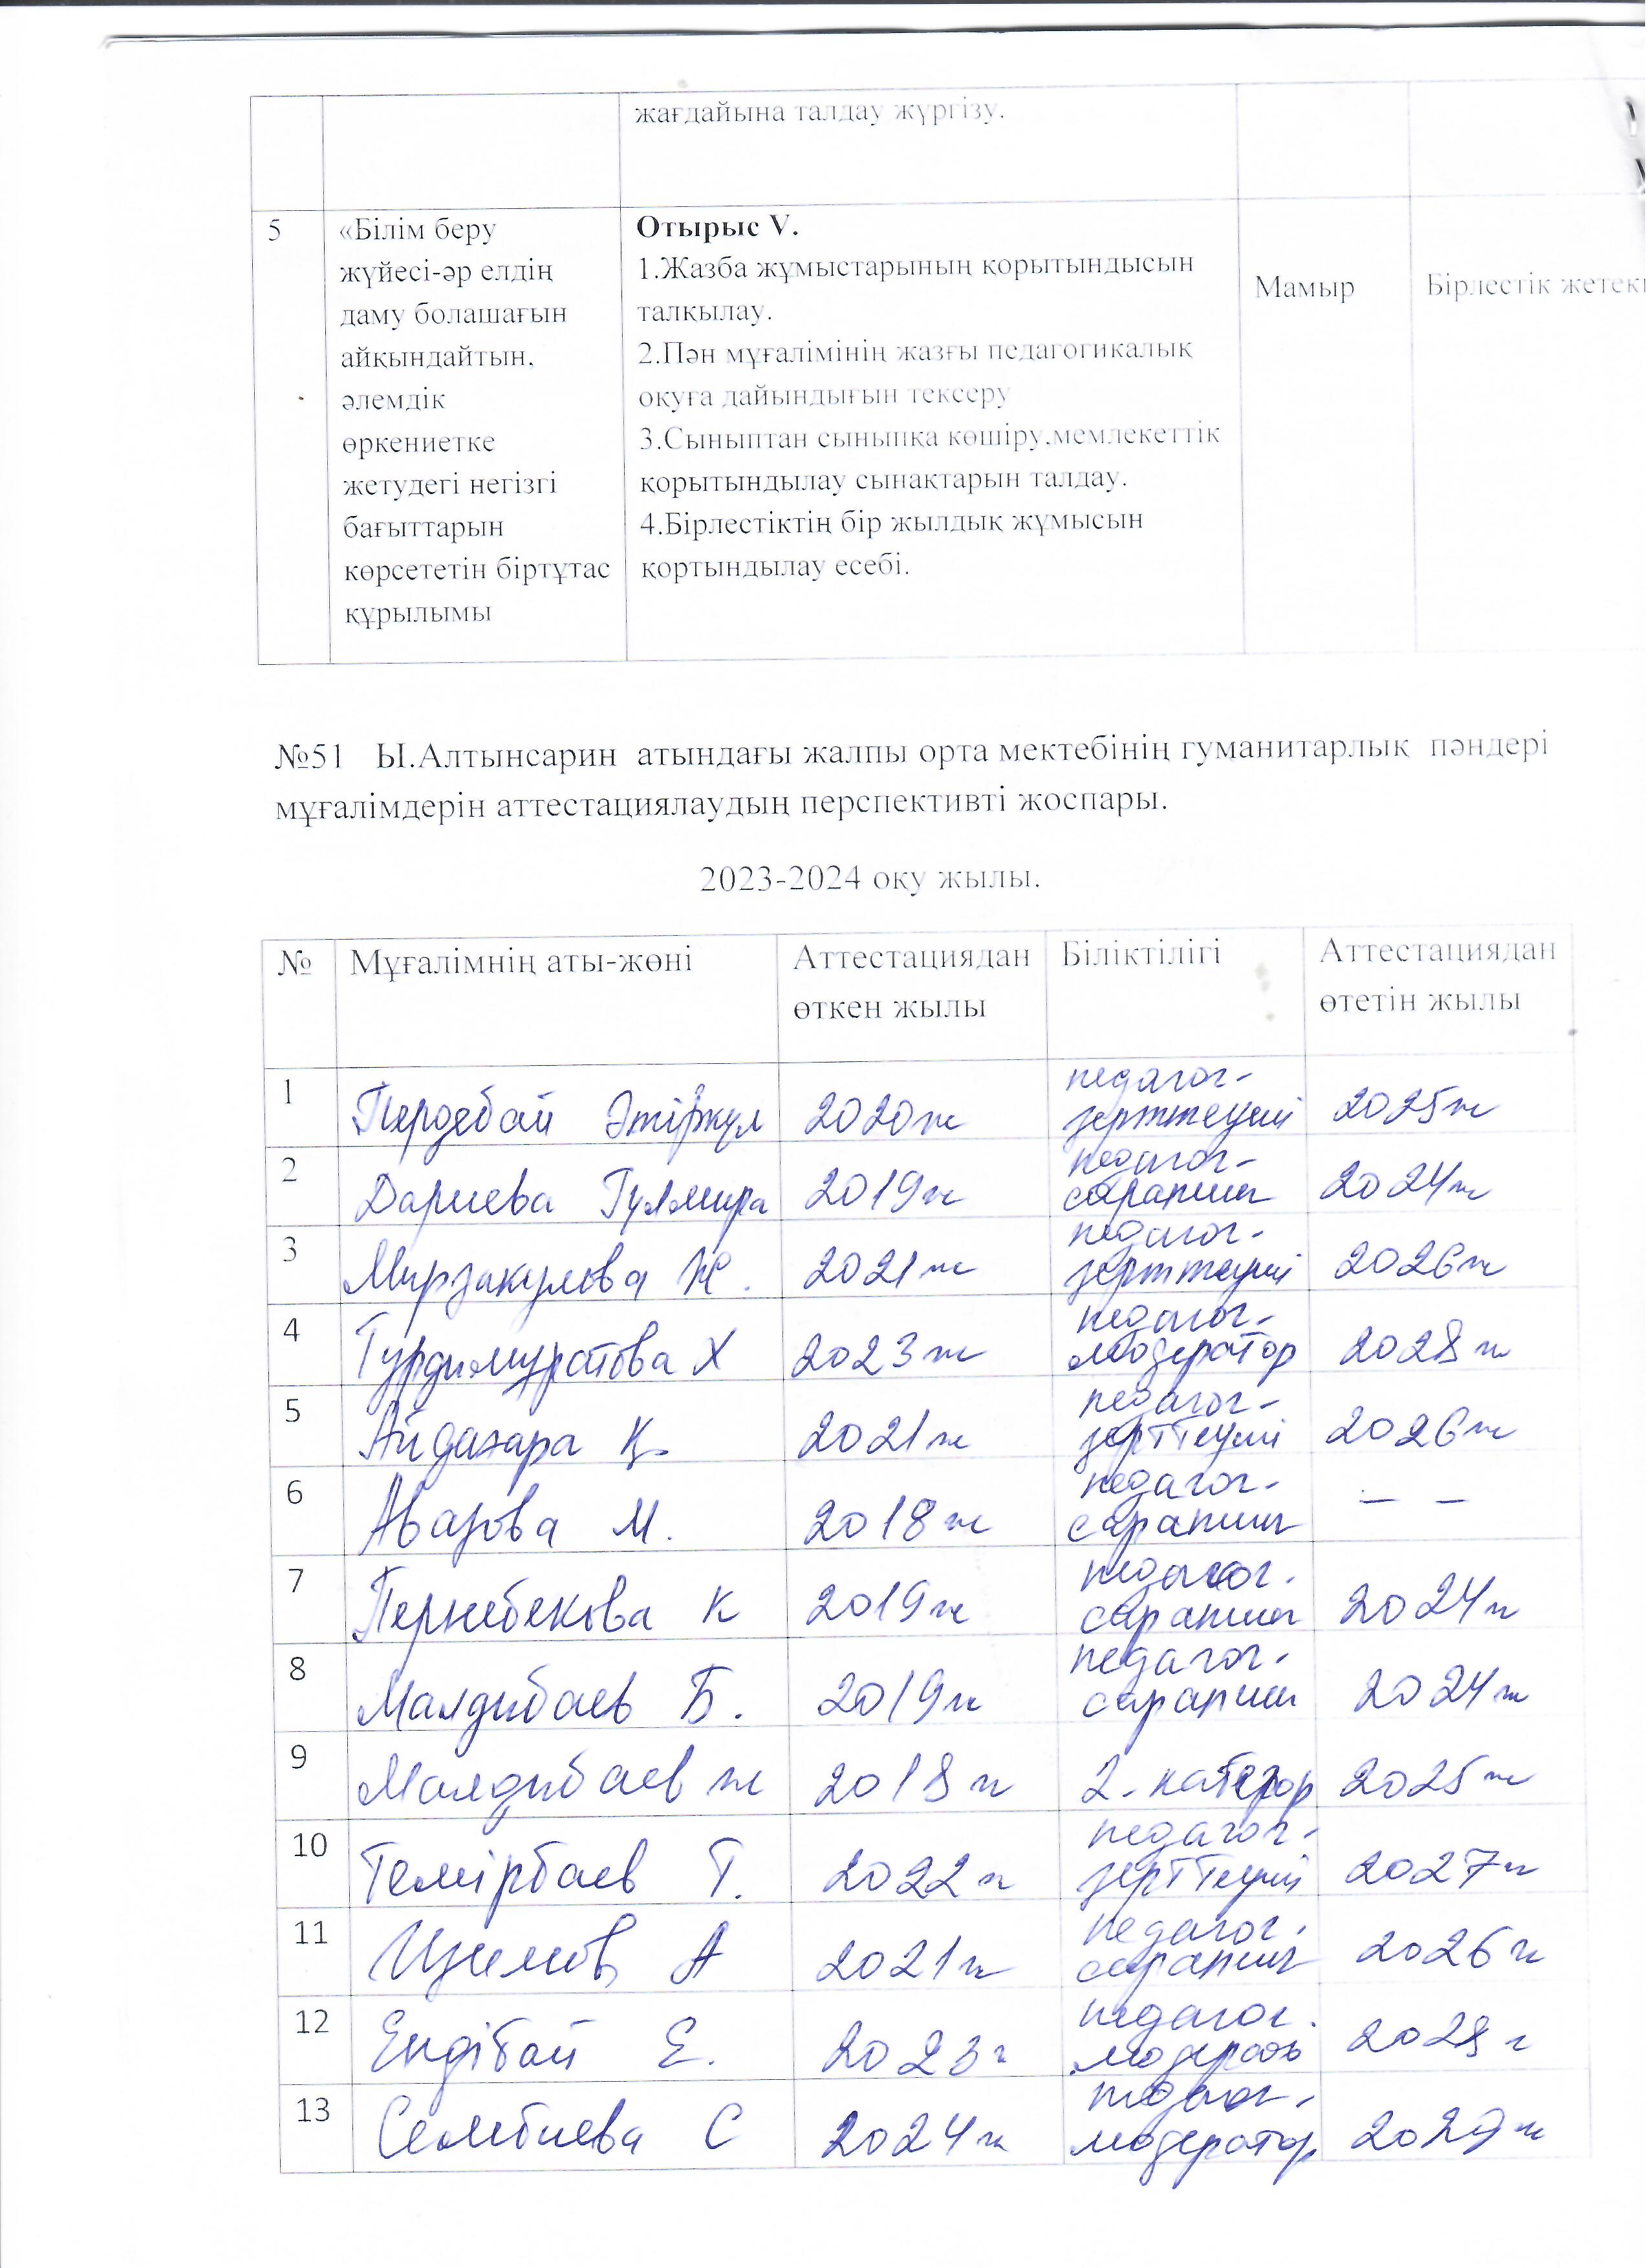 жағдайына талдау жүргізу.
5
«Білім беру
жүйесі-әр елдің
даму болашағын
айқындайтын,
әлемдік
өркениетке
жетудегі негізгі
бағыттарын
көрсететін біртұтас
құрылымы
Отырыс V.
1.Жазба жұмыстарының қорытындысын
талқылау.
2.Пән мұғалімінің жазғы педагогикалық
оқуға дайындығын тексеру
3.Сыныптан сыныпқа көшіру,мемлекеттік
қорытындылау сынақтарын талдау.
4.Бірлестіктің бір жылдық жұмысын
қортындылау есебі.
Мамыр
Бірлестік
№51 Ы.Алтынсарин атындағы жалпы орта мектебінің гуманитарлық пәндері
мұғалімдерін аттестациялаудың перспективті жоспары.
2023-2024 оқу жылы.
№ Мұғалімнің аты-жөні Аттестациядан өткен жылы Біліктілігі Аттестациядан өтетін жылы
1 Пердебай Әмірқұл 2020ж педагог-зерттеуші 2025ж
2 Дариева Гулмира 2019ж педагог-сарапшы 2024ж
3 Мирзакулова Ж. 2021ж педагог-зерттеуші 2026ж
4 Турдимуратова Х 2023ж педагог-модератор 2028ж
5 Қ. 2021ж педагог-зерттеуші 2026ж
6 Авазова М. 2018ж педагог-сарапшы — —
7 Пернебекова К 2019ж педагог-сарапшы 2024ж
8 Малдибаев Б. 2019ж педагог-сарапшы 2024ж
9 Малдибаев ж 2018ж 2-категор 2025ж
10 Темірбаев Т. 2022ж педагог-зерттеуші 2027ж
11 А 2021ж педагог-сарапшы 2026ж
12 Ендібай Е. 2023ж педагог-модератор 2028ж
13 Сембиева С 2024ж педагог-модератор 2029ж